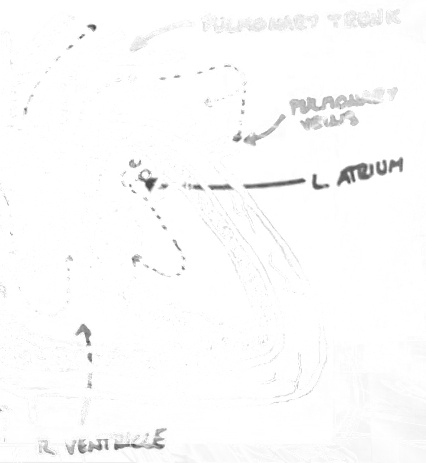 PULMONARY TRUNK
PULMONARY
VEINS
L ATRIUM
R VENTRICLE